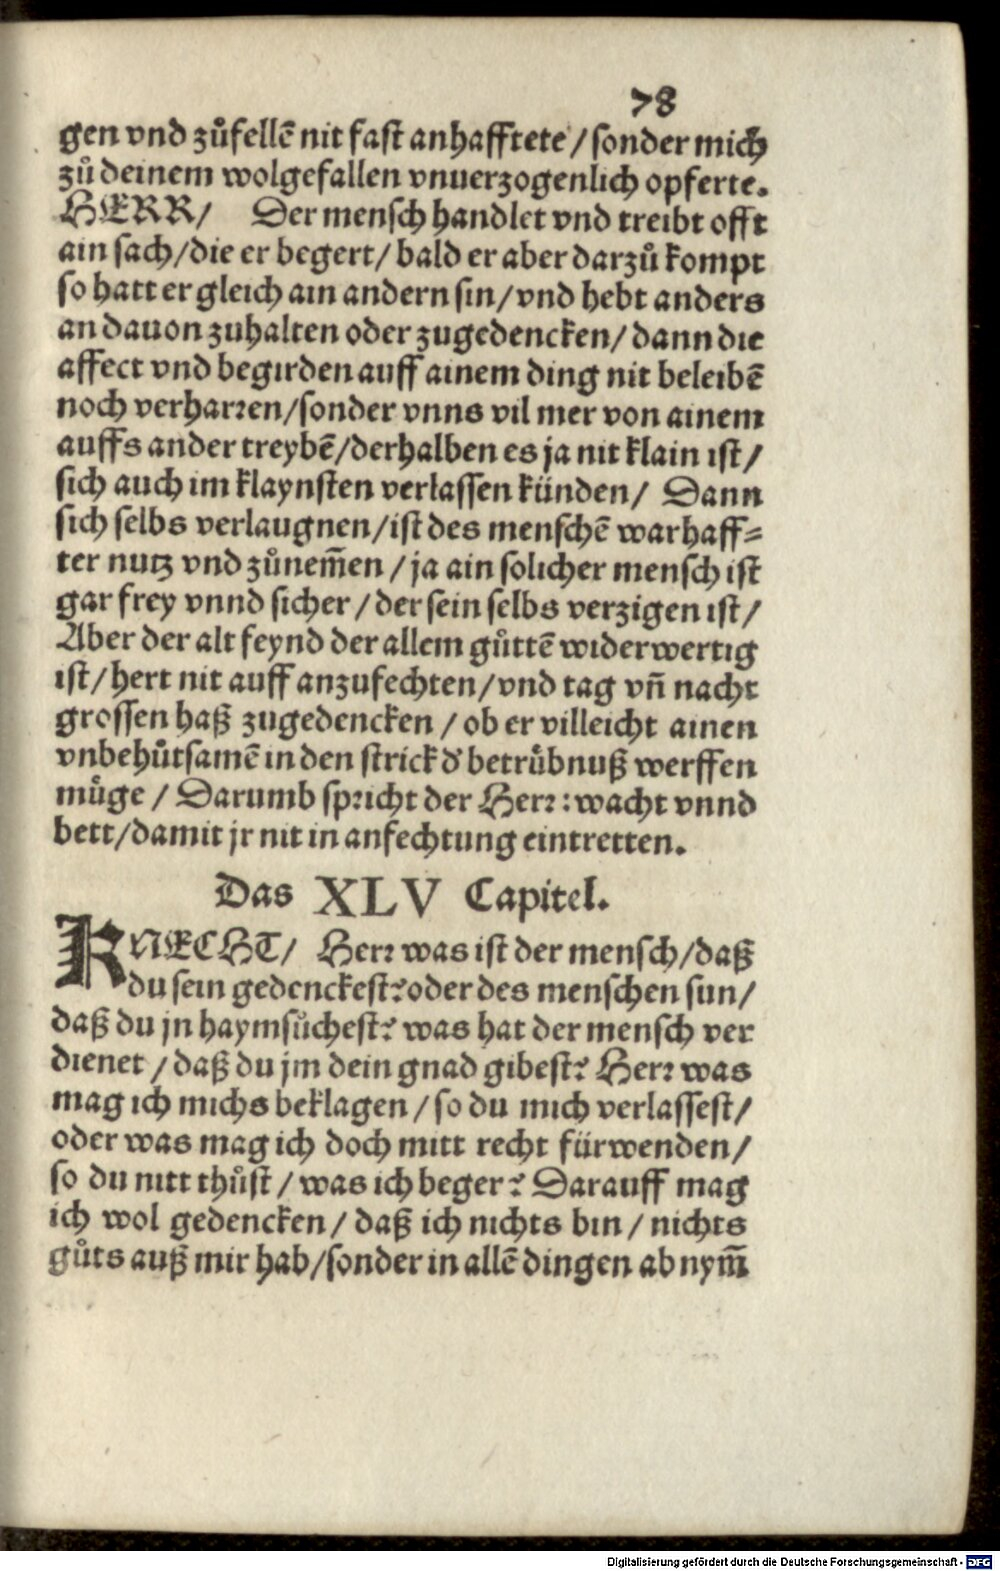 78
gen vnd zůfellē nit fast anhafftete / sonder mich
zů deinem wolgefallen vnuerzogenlich opferte.
HERR / Der mensch handlet vnd treibt offt
ain sach / die er begert / bald er aber darzů kompt
so hatt er gleich ain andern sin / vnd hebt anders
an dauon zuhalten oder zugedencken / dann die
affect vnd begirden auff ainem ding nit beleibē
noch verharren / sonder vnns vil mer von ainem
auffs ander treybē / derhalben es ja nit klain ist /
sich auch im klaynsten verlassen künden / Dann
sich selbs verlaugnen / ist des menschē warhaff⸗
ter nutz vnd zůnem̄en / ja ain solicher mensch ist
gar frey vnnd sicher / der sein selbs verzigen ist /
Aber der alt feynd der allem gůttē widerwertig
ist / hert nit auff anzufechten / vnd tag vn̄ nacht
grossen haß zugedencken / ob er villeicht ainen
vnbehůtsamē in den strick d' betrůbnuß werffen
můge / Darumb spricht der Herr : wacht vnnd
bett / damit jr nit in anfechtung eintretten.
Das XLV Capitel.
KNECHT / Herr was ist der mensch / daß
du sein gedenckest? oder des menschen sun /
daß du jn haymsůchest? was hat der mensch ver
dienet / daß du jm dein gnad gibest? Herr was
mag ich michs beklagen / so du mich verlassest /
oder was mag ich doch mitt recht fürwenden /
so du nitt thůst / was ich beger? Darauff mag
ich wol gedencken / daß ich nichts bin / nichts
gůts auß mir hab / sonder in allē dingen ab nym̄
Digitalisierung gefördert durch die Deutsche Forschungsgemeinschaft - DFG